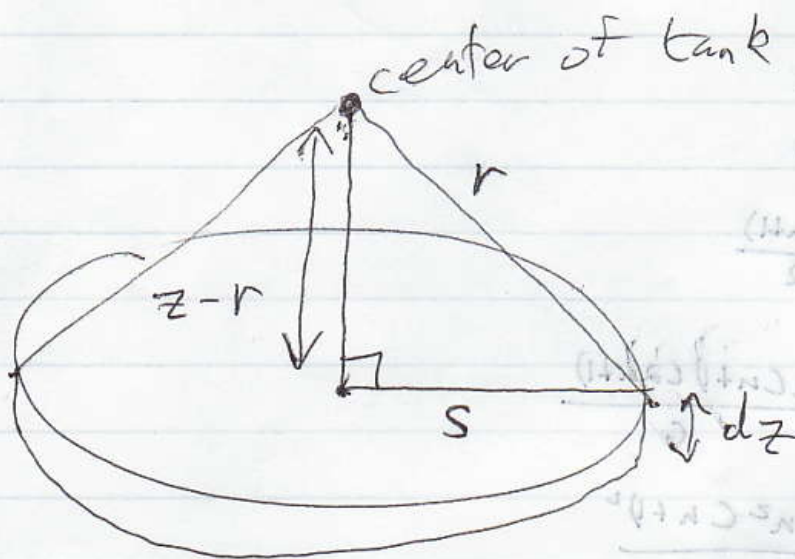 center of tank
r
z-r
s
dz